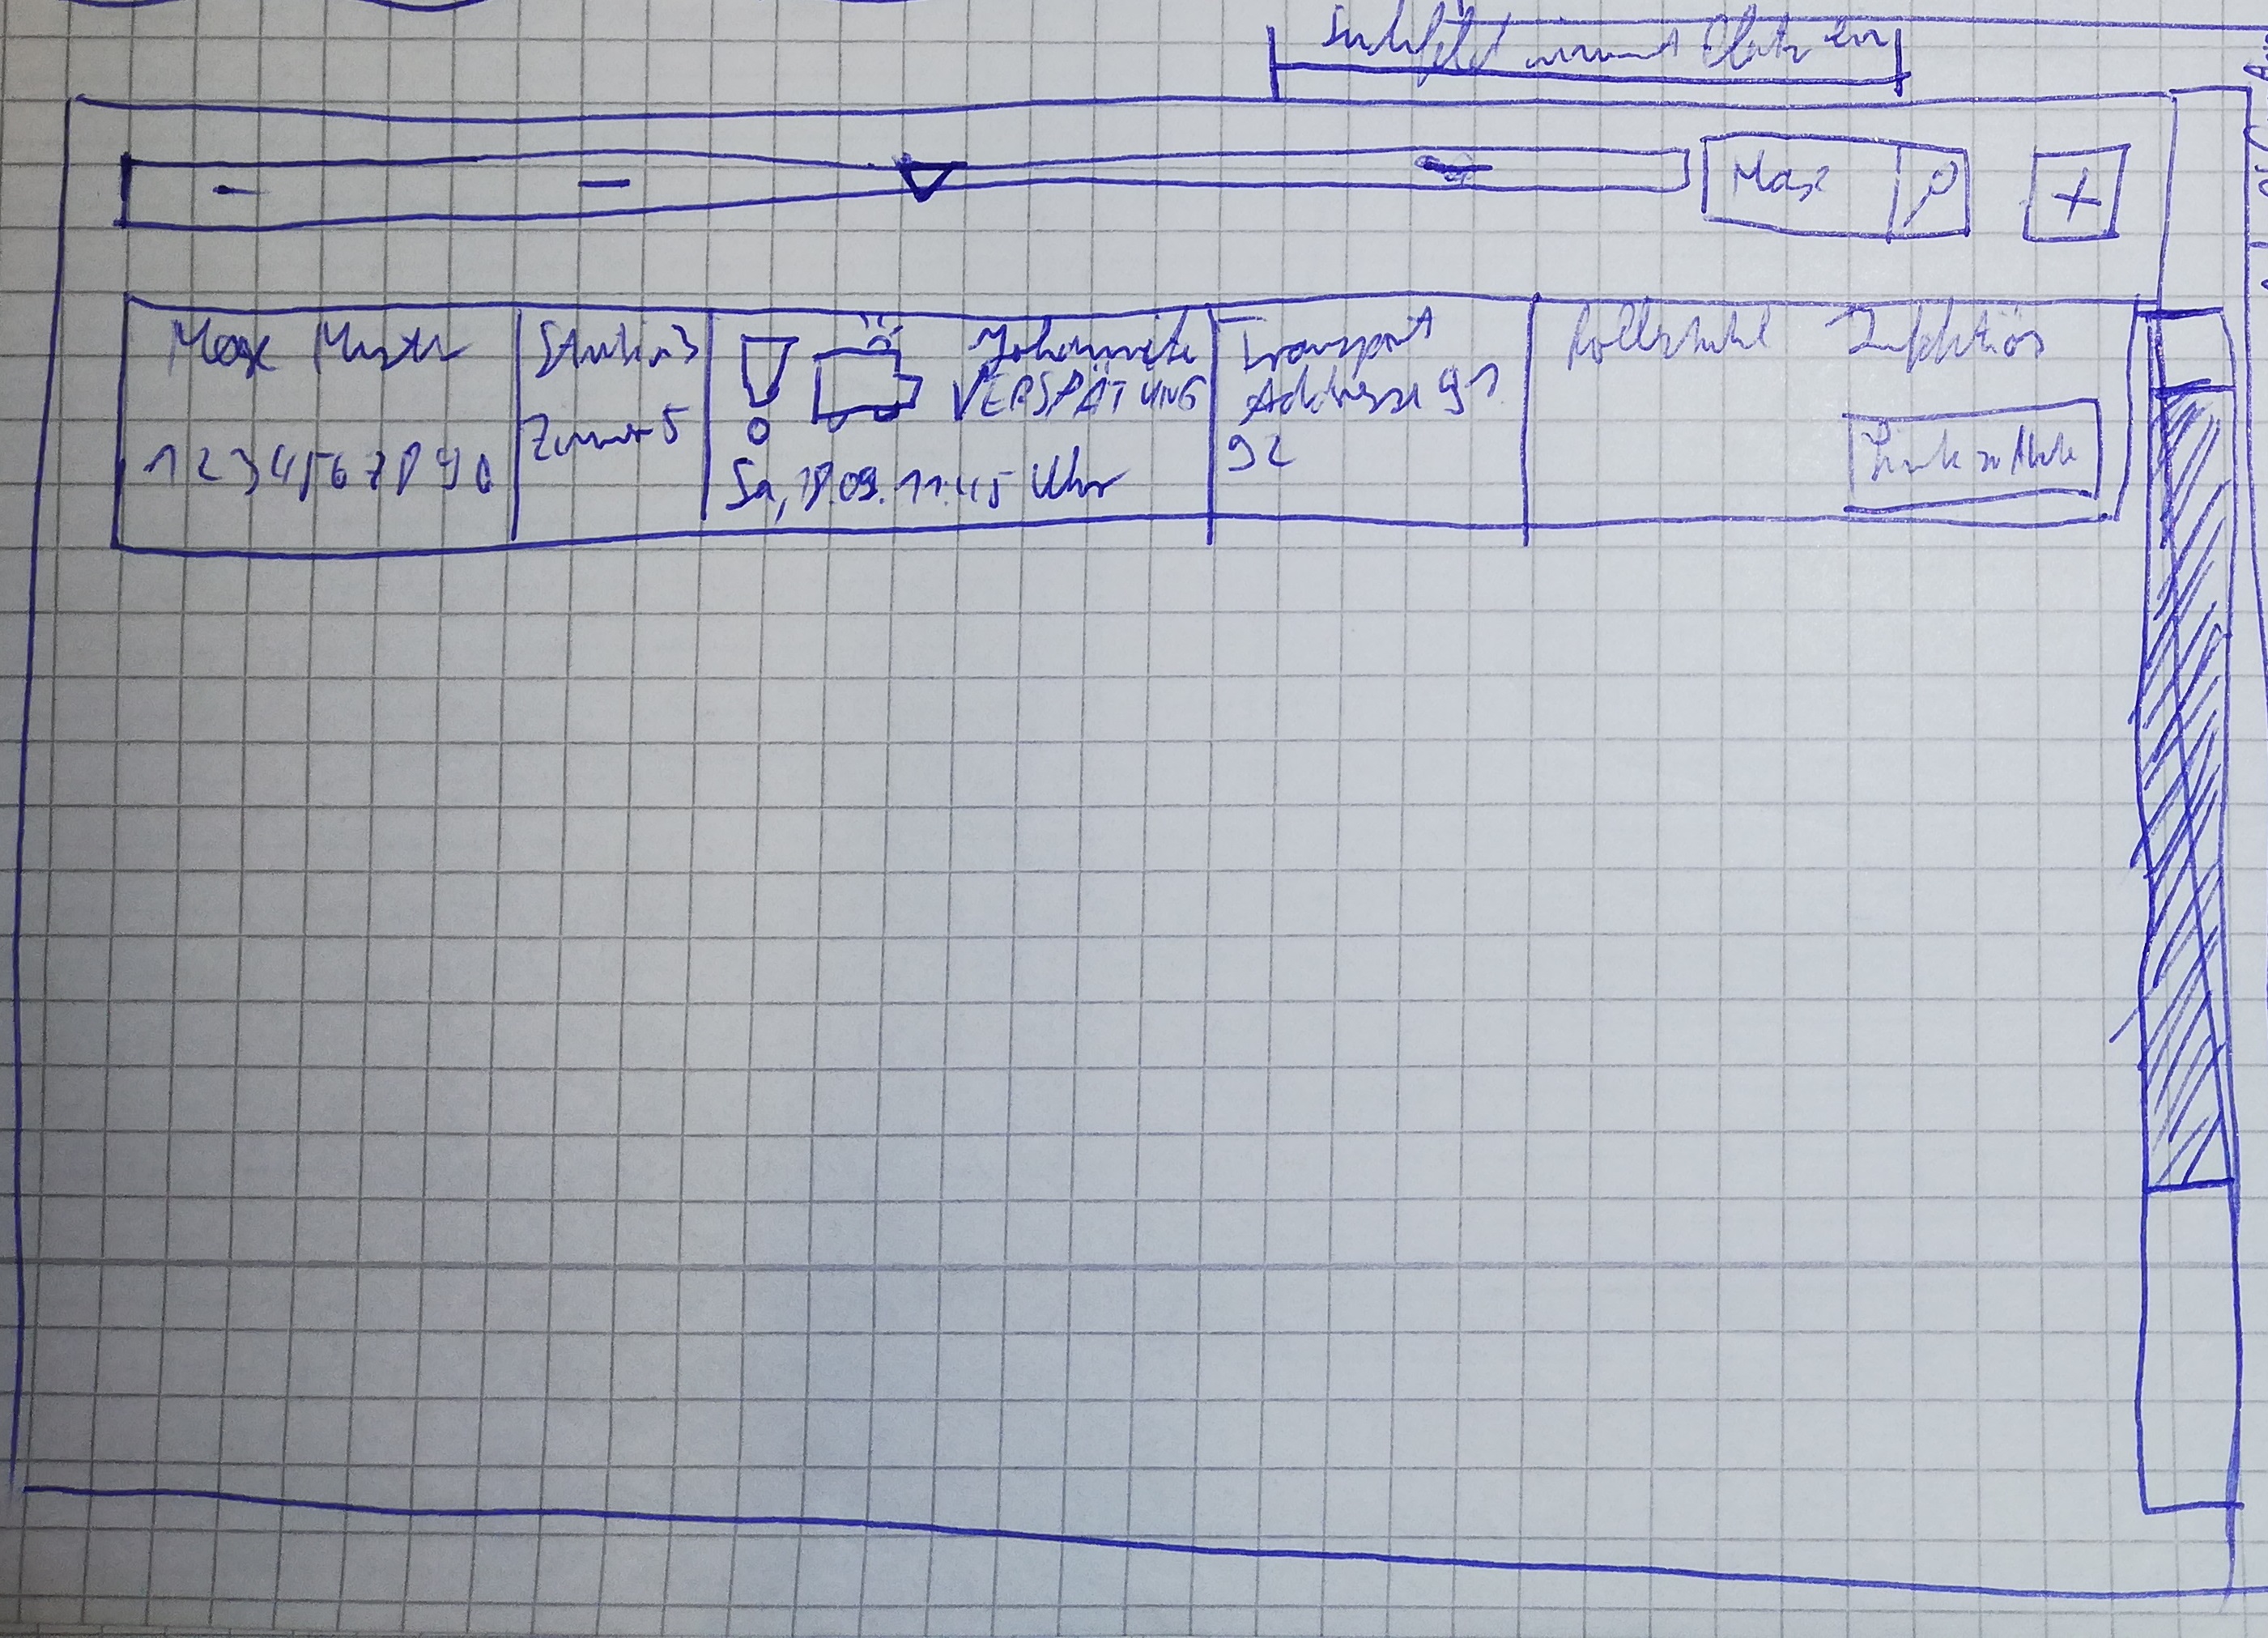 Suchfeld nimmt Platz ein
Max
Max Muster
1234567890
Station 3
Zimmer 5
Johanniter
VERSPÄTUNG
Sa, 18.09. 11:45 Uhr
Transport
Addresse 91
92
Rollstuhl Infektiös